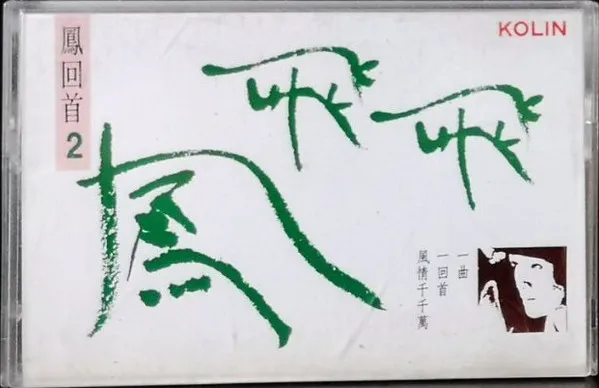 鳳回首
2
KOLIN
鳳飛飛
一曲
一回首
風情千千萬